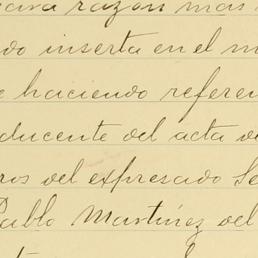 para razón mas
do inserta en el m
e haciendo referen
ducente del acta de
ros del expresado Se
Pablo Martínez del